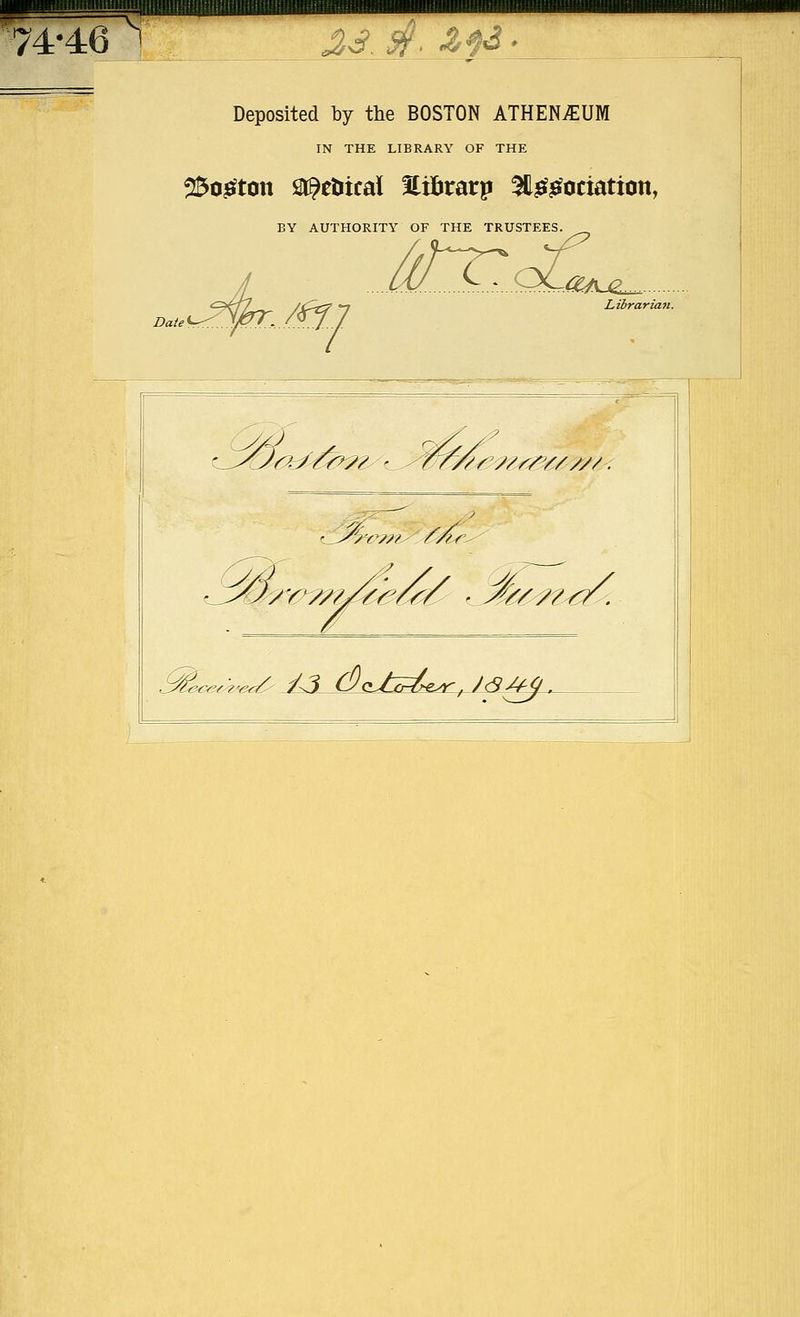 74·46
23. A. 293.
Deposited by the BOSTON ATHENÆUM
IN THE LIBRARY OF THE
Boston Medical Library Association,
BY AUTHORITY OF THE TRUSTEES.
W C. Lane
Librarian.
Date Apr. 1897
Boston Athenæum.
From the
Bromfield Fund.
Received 13 October, 1849.